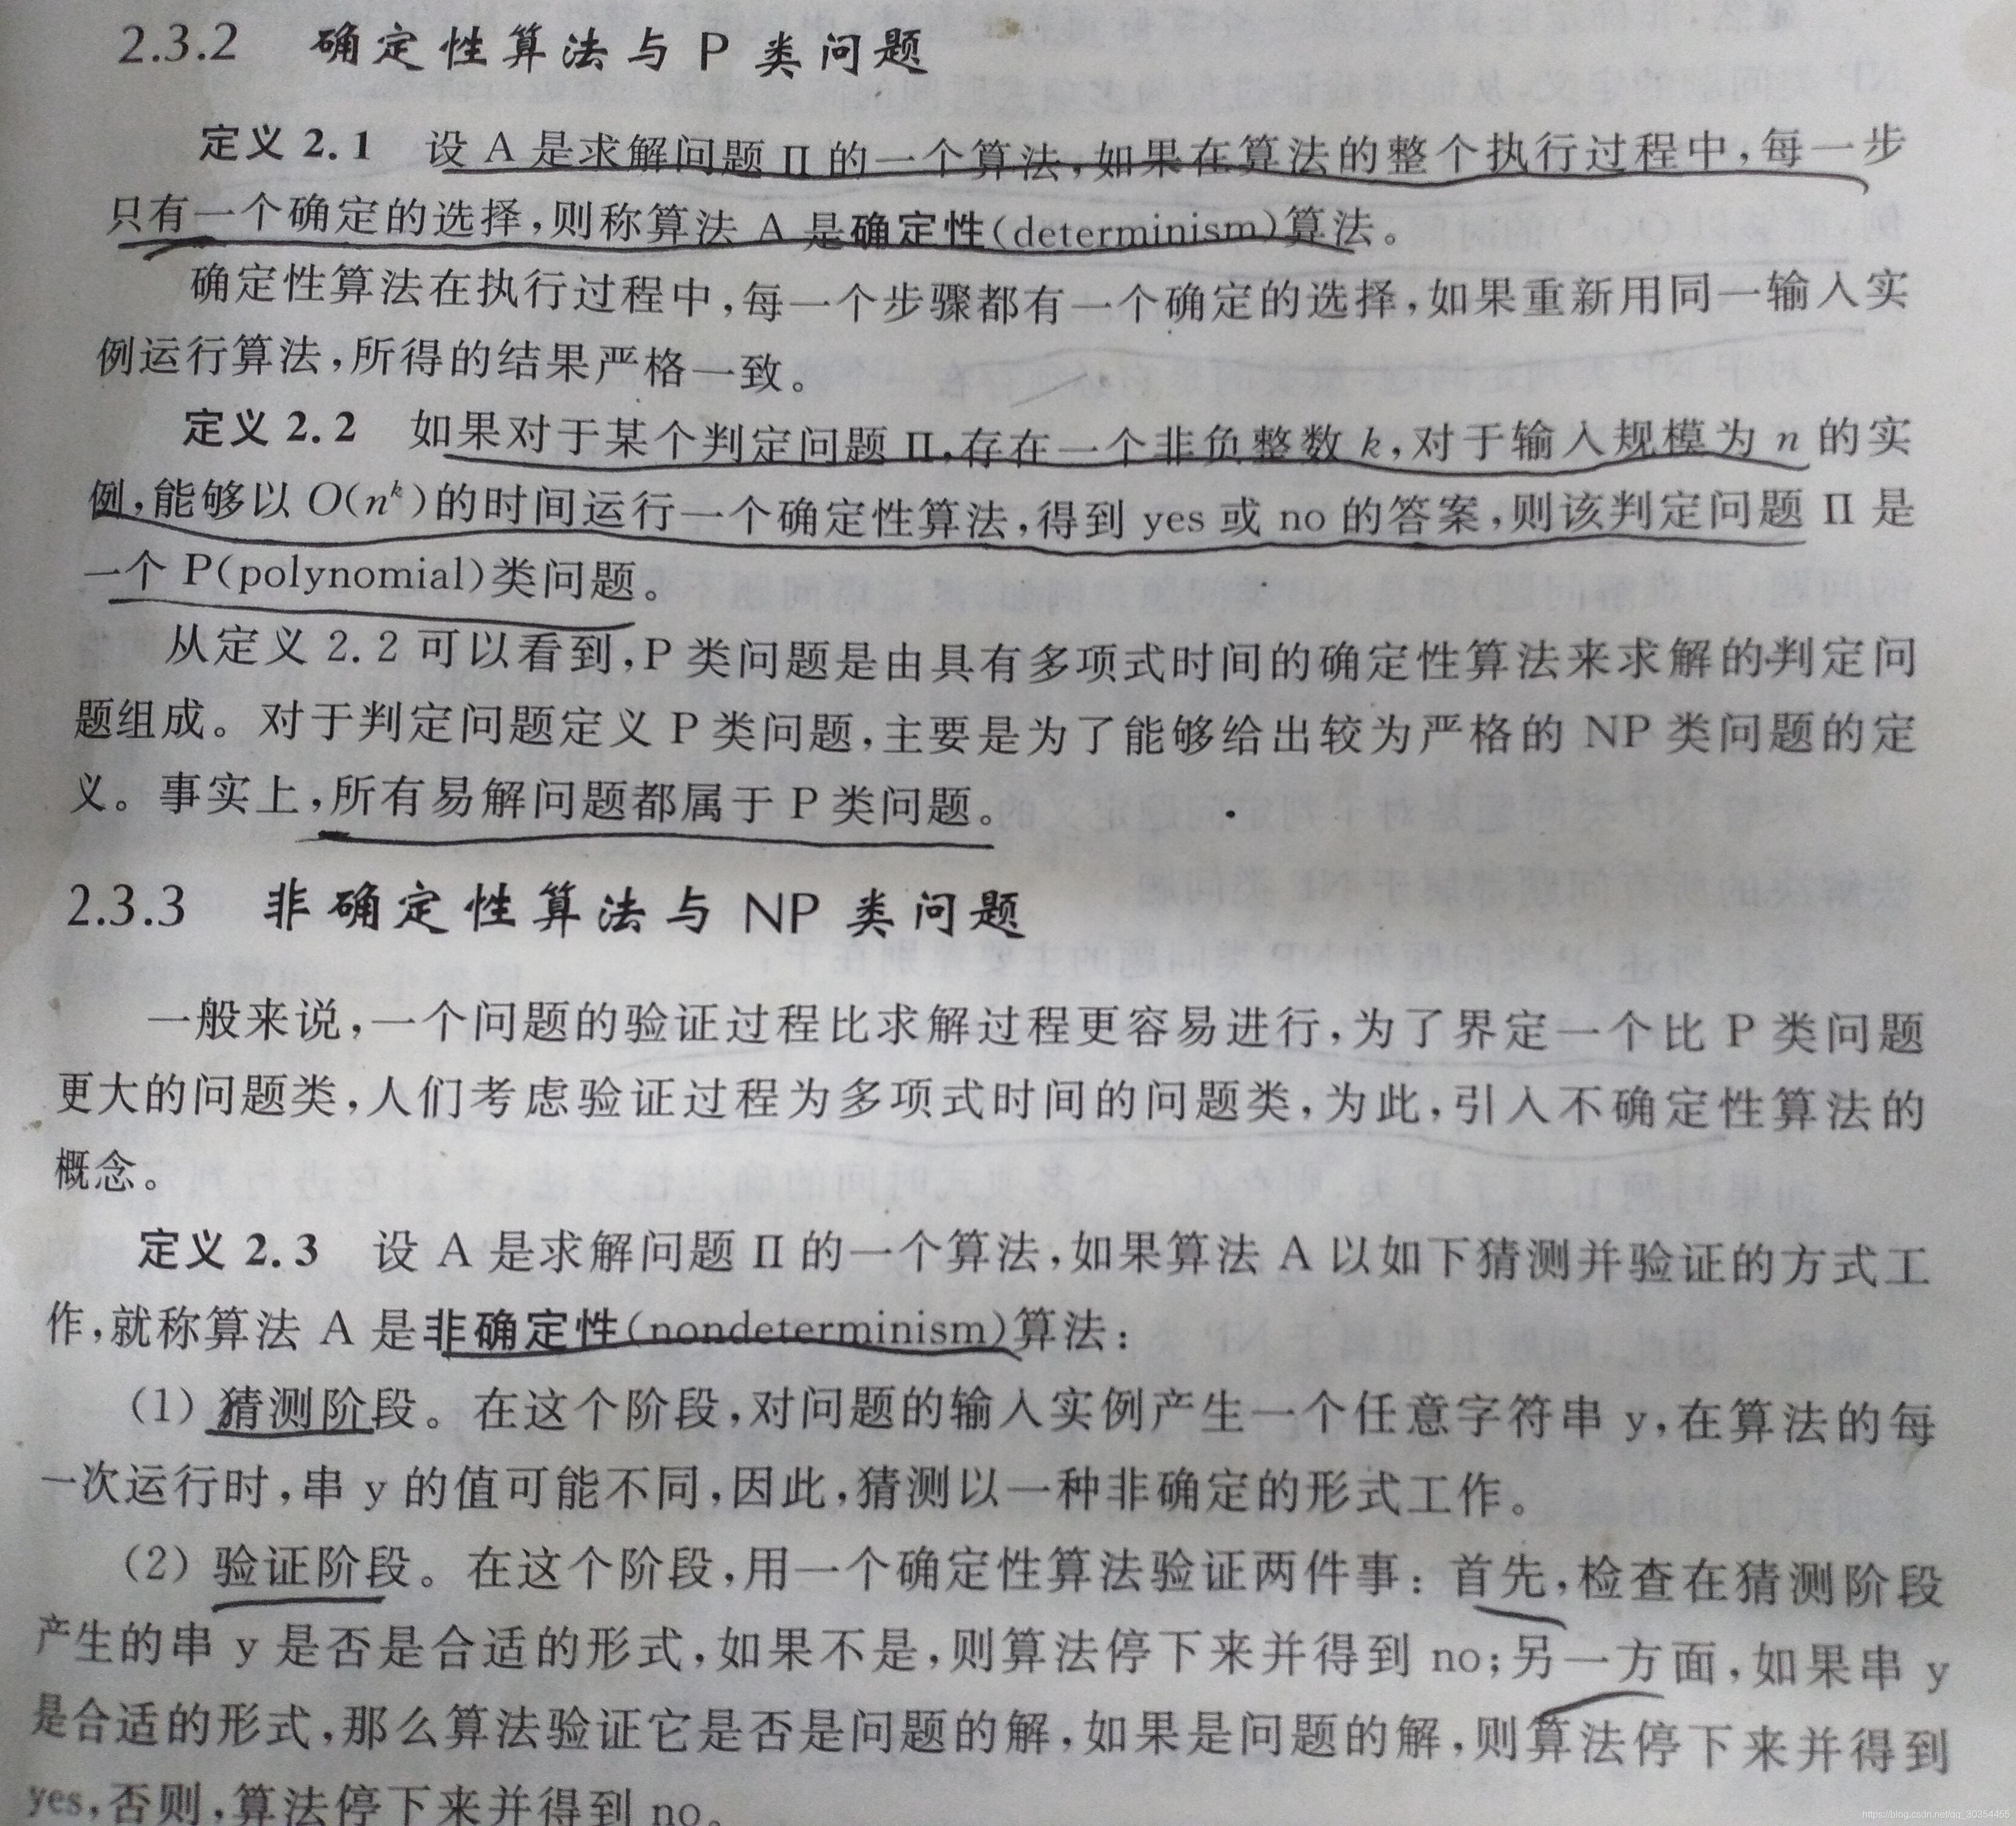 2.3.2 确定性算法与 P 类问题
定义 2.1 设 A 是求解问题 Π 的一个算法,如果在算法的整个执行过程中,每一步
只有一个确定的选择,则称算法 A 是确定性(determinism)算法。
确定性算法在执行过程中,每一个步骤都有一个确定的选择,如果重新用同一输入实
例运行算法,所得的结果严格一致。
定义 2.2 如果对于某个判定问题 Π,存在一个非负整数 k,对于输入规模为 n 的实
例,能够以 O(nᵏ)的时间运行一个确定性算法,得到 yes 或 no 的答案,则该判定问题 Π 是
一个 P(polynomial)类问题。
从定义 2.2 可以看到,P 类问题是由具有多项式时间的确定性算法来求解的判定问
题组成。对于判定问题定义 P 类问题,主要是为了能够给出较为严格的 NP 类问题的定
义。事实上,所有易解问题都属于 P 类问题。
2.3.3 非确定性算法与 NP 类问题
一般来说,一个问题的验证过程比求解过程更容易进行,为了界定一个比 P 类问题
更大的问题类,人们考虑验证过程为多项式时间的问题类,为此,引入不确定性算法的
概念。
定义 2.3 设 A 是求解问题 Π 的一个算法,如果算法 A 以如下猜测并验证的方式工
作,就称算法 A 是非确定性(nondeterminism)算法:
(1) 猜测阶段。在这个阶段,对问题的输入实例产生一个任意字符串 y,在算法的每
一次运行时,串 y 的值可能不同,因此,猜测以一种非确定的形式工作。
(2) 验证阶段。在这个阶段,用一个确定性算法验证两件事:首先,检查在猜测阶段
产生的串 y 是否是合适的形式,如果不是,则算法停下来并得到 no;另一方面,如果串 y
是合适的形式,那么算法验证它是否是问题的解,如果是问题的解,则算法停下来并得到
yes,否则,算法停下来并得到 no。
https://blog.csdn.net/qq_30354455